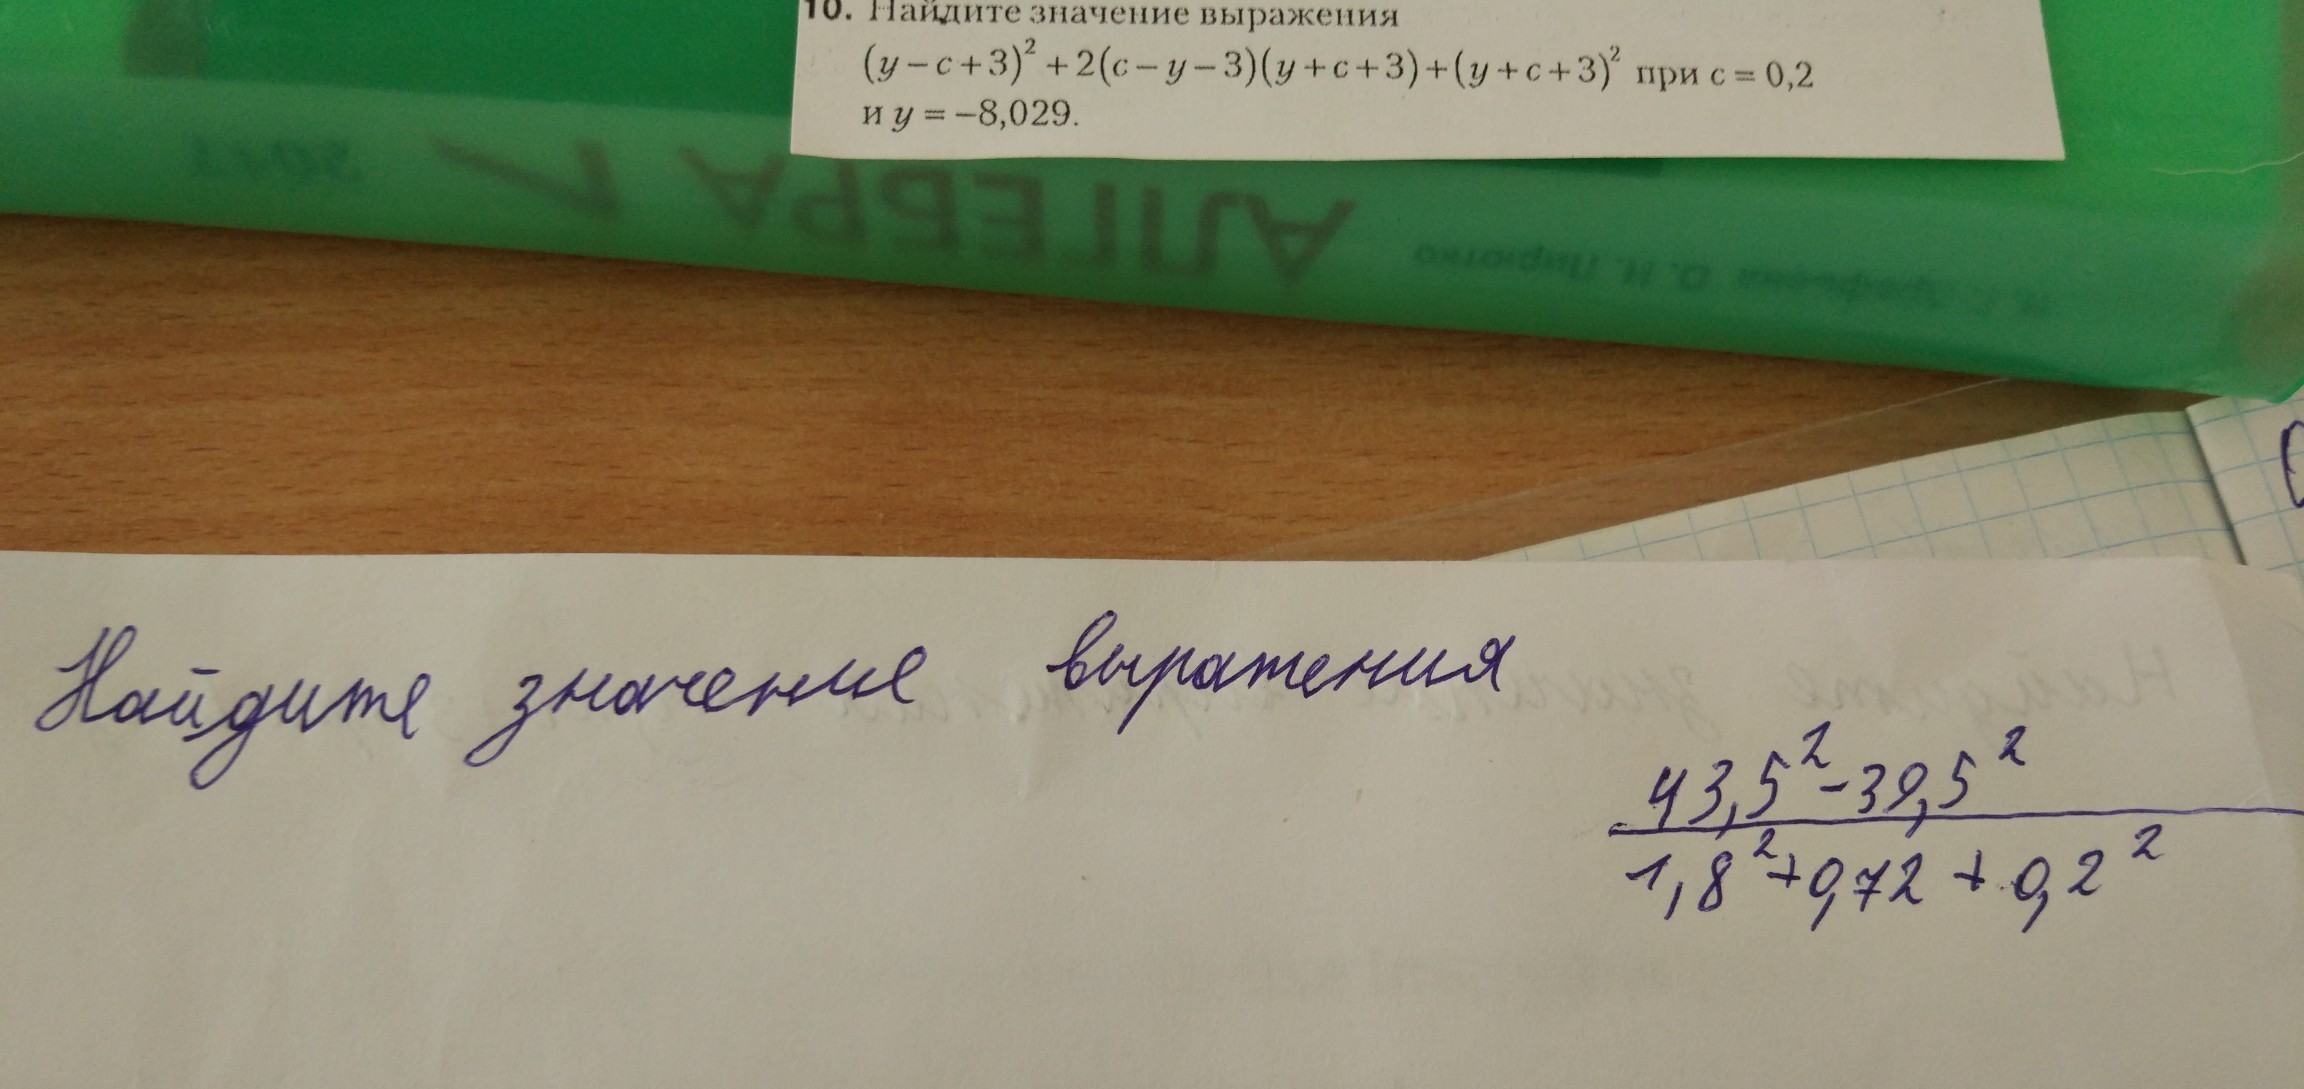 10. Найдите значение выражения
(y − c + 3)² + 2(c − y − 3)(y + c + 3) + (y + c + 3)² при c = 0,2
и y = −8,029.
АЛГЕБРА 7
О. Н. Пирютко
Найдите значение выражения
43,5² - 39,5²
1,8² + 0,72 + 0,2²